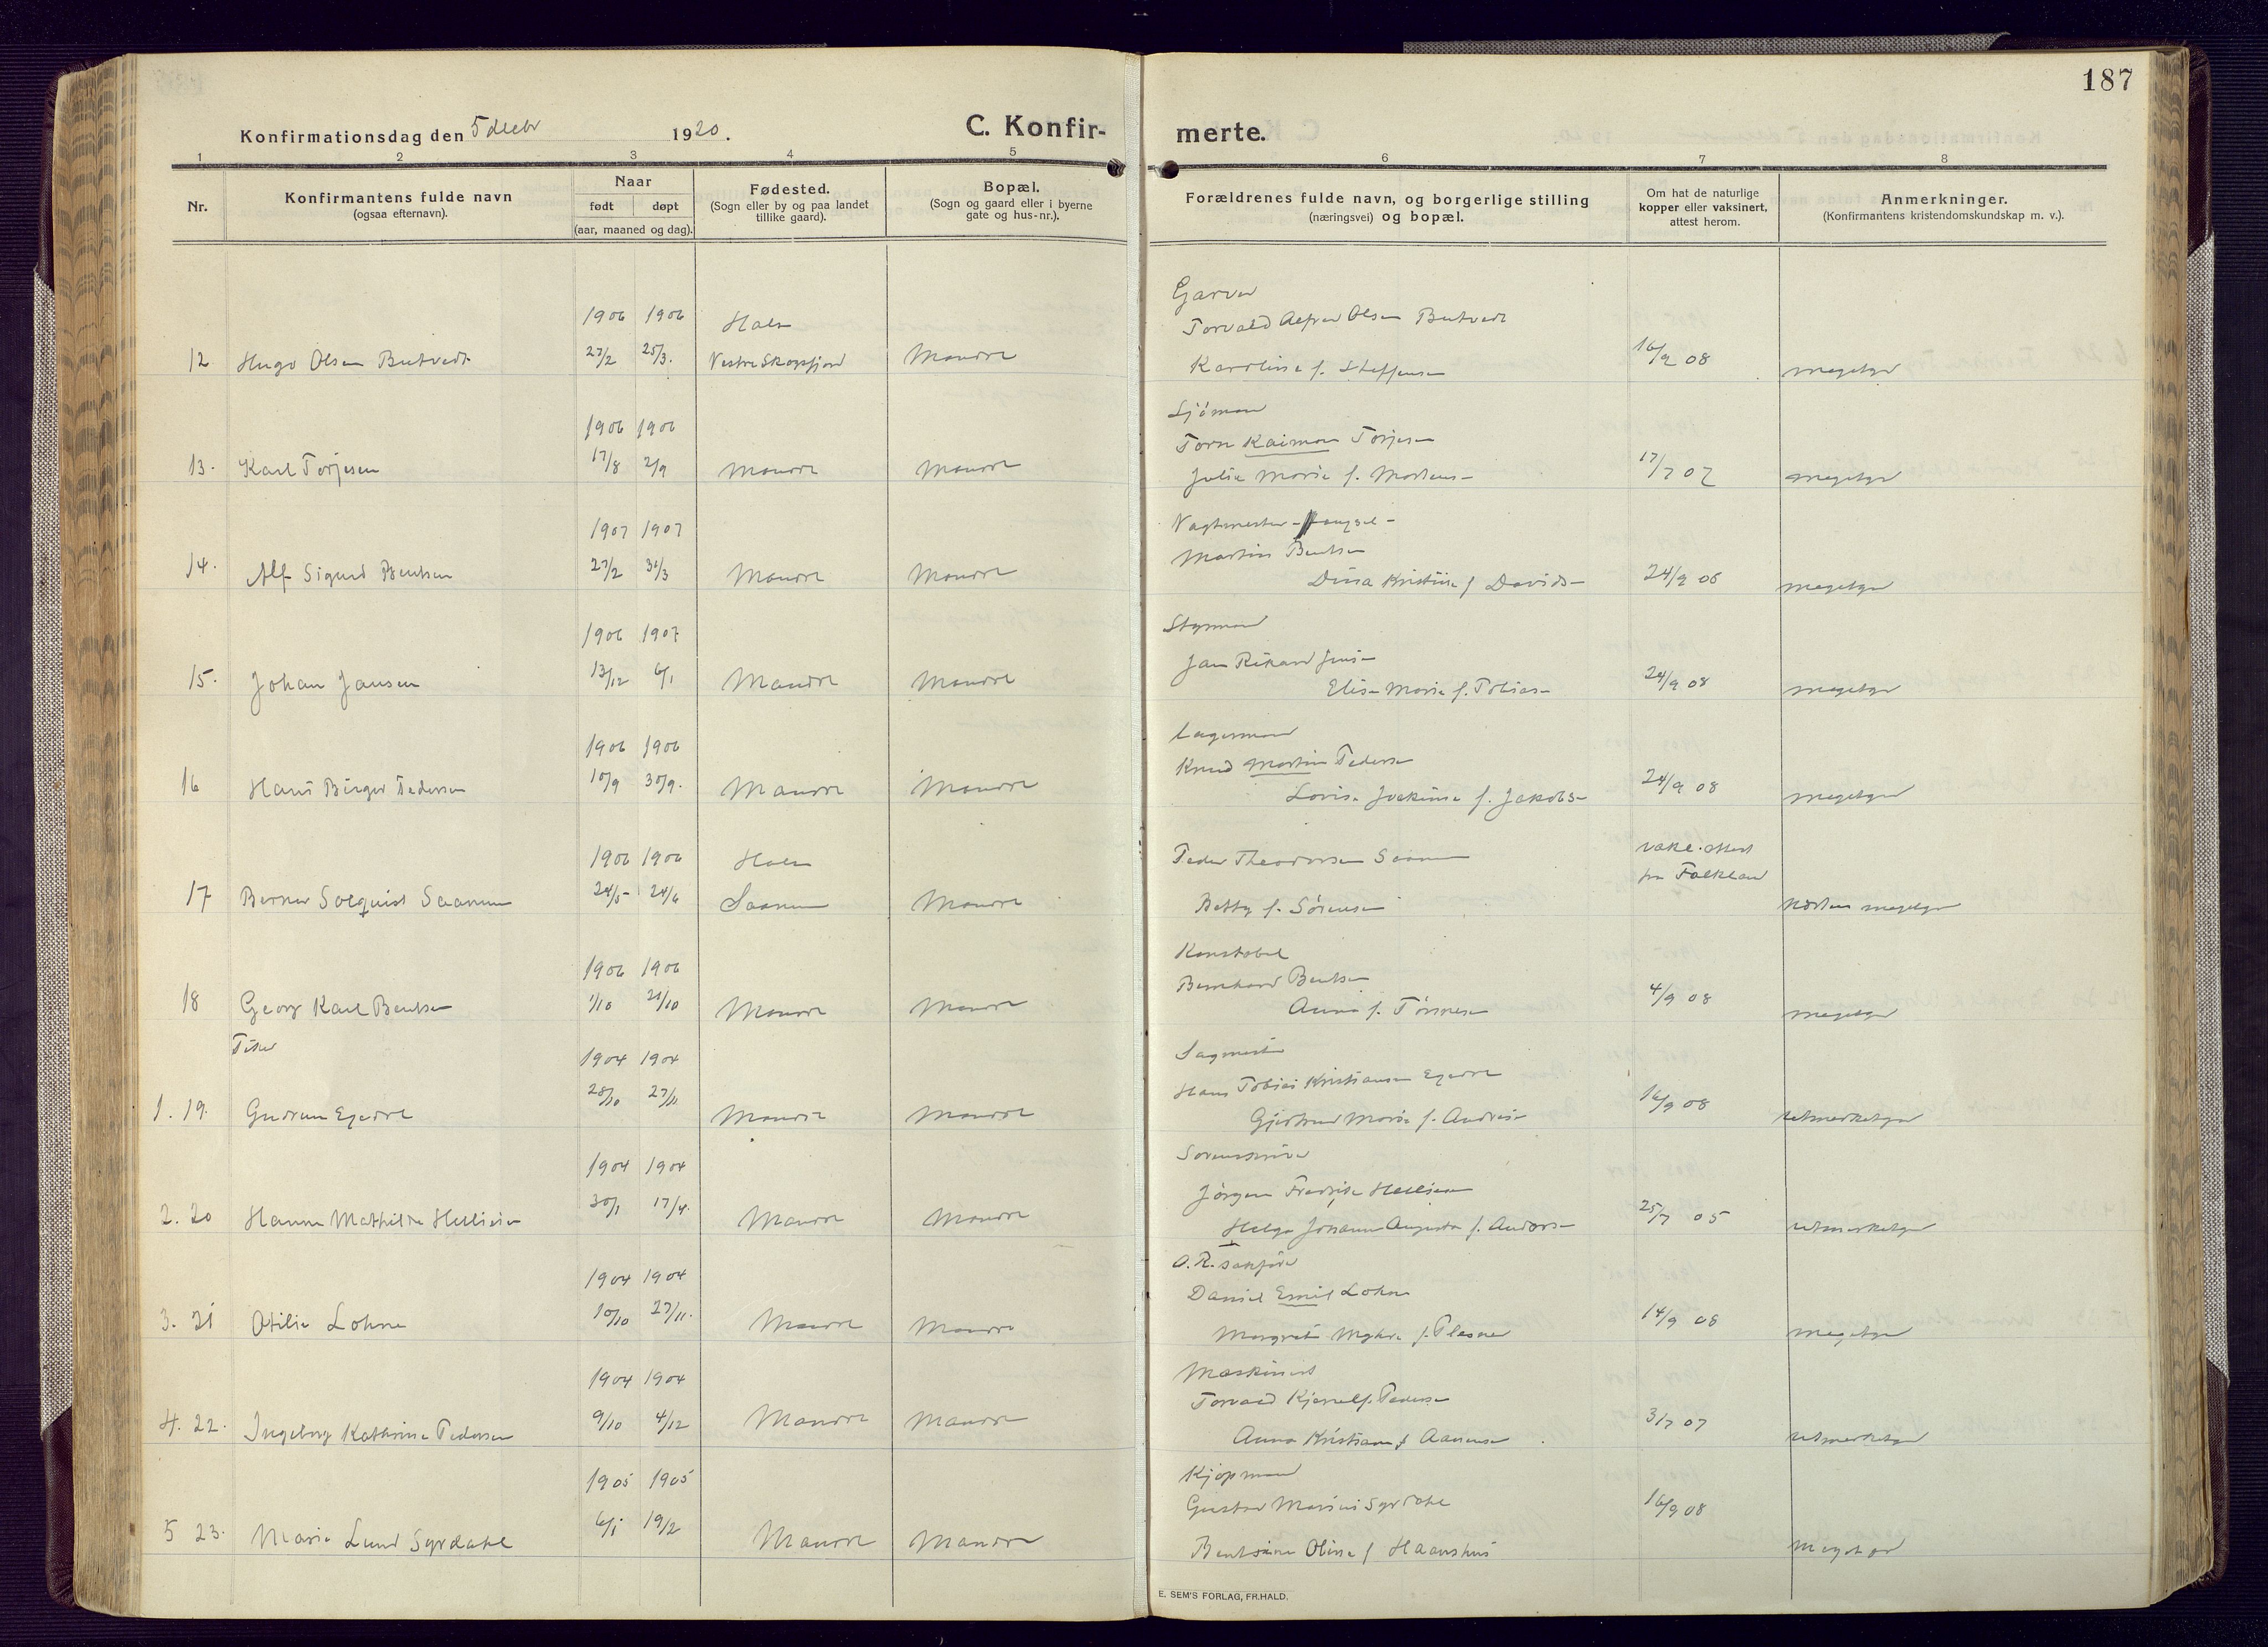 187
Konfirmationsdag den 5 decbr 1920.
C. Konfirmerte.
1 2 3 4 5 6 7 8
Nr.
Konfirmantens fulde navn
(ogsaa efternavn).
Naar
født døpt
(aar, maaned og dag).
Fødested.
(Sogn eller by og paa landet
tillike gaard).
Bopæl.
(Sogn og gaard eller i byerne
gate og hus-nr.).
Forældrenes fulde navn, og borgerlige stilling
(næringsvei) og bopæl.
Om hat de naturlige
kopper eller vaksinert,
attest herom.
Anmerkninger.
(Konfirmantens kristendomskundskap m. v.).
Garver
1906 1906 Halse Torvald Alfred Olsen
12 Hugo Olsen 27/2 25/3. Vestre Skogsfjord Mandal Karoline f. Steffensen 16/9 08 megetgd
Sjömand
1906 1906 Kaiman Torjesen
13. Karl Torjesen 17/8 2/9 Mandal Mandal Julie Marie f. Mortens- 17/7 07 megetgd
Vagtmester
1907 1907 Martin Bentsen
14. Alf Sigurd Bentsen 27/2 31/3 Mandal Mandal Kristine f Davids- 24/9 megetgd
Styrmand
1906 1907 Jan Rikard
15. Johan Jansen 13/12 6/1 Mandal Mandal Elise Marie f. Tobias- 24/9 08 megetgd
Lagermand
1906 1906 Knud Martin Pedersen
16 Hans Birger Pedersen 10/9 30/9. Mandal Mandal Lovise Joakime f. Jakobs- 24/9 08 megetgd
1906 1906 Halse Peder Theodorsen Saanum vakc. attest
fra Falkland
17 Berner Solquist Saanum 24/5 24/6 Saanum Mandal Betty f. Sörensen næsten megetgd
Konstabel
1906 1906 Bernhard Bentsen
18 Georg Karl Bentsen 1/10 21/10 Mandal Mandal Anna f. 4/9 08 megetgd
Piker
1904 1904 Hans Tobias Kristiansen
1. 19. Gudrun 28/10 27/11 Mandal Mandal Gjertrud Marie f. 16/9 08 utmerketgd
Sorenskriver
1904 1904 Jörgen Fredrik Helliesen
2. 20 Hanna Mathilde Helliesen 30/1 17/4. Mandal Mandal Helga Johanne Augusta f. Anders- 25/7 05 utmerketgd
O.R. sakfører
1904 1904 Daniel Emil Lohne
3. 21 Otilie Lohne 10/10 27/11. Mandal Mandal Margrete f. 14/9 08 megetgd
Maskinist
1904 1904 Torvald Pedersen
4. 22. Ingeborg Kathrine Pedersen 9/10 4/12 Mandal Mandal Anna Kristiane f Aanensen 3/7 07 utmerketgd
Kjøpmand
1905 1905 Gustav Marius Syrdahl
5 23. Marie Lund Syrdahl 6/1 19/2 Mandal Mandal Bentsine Oline f Haanshus 16/9 08 megetgd
E. SEM'S FORLAG, FR.HALD.